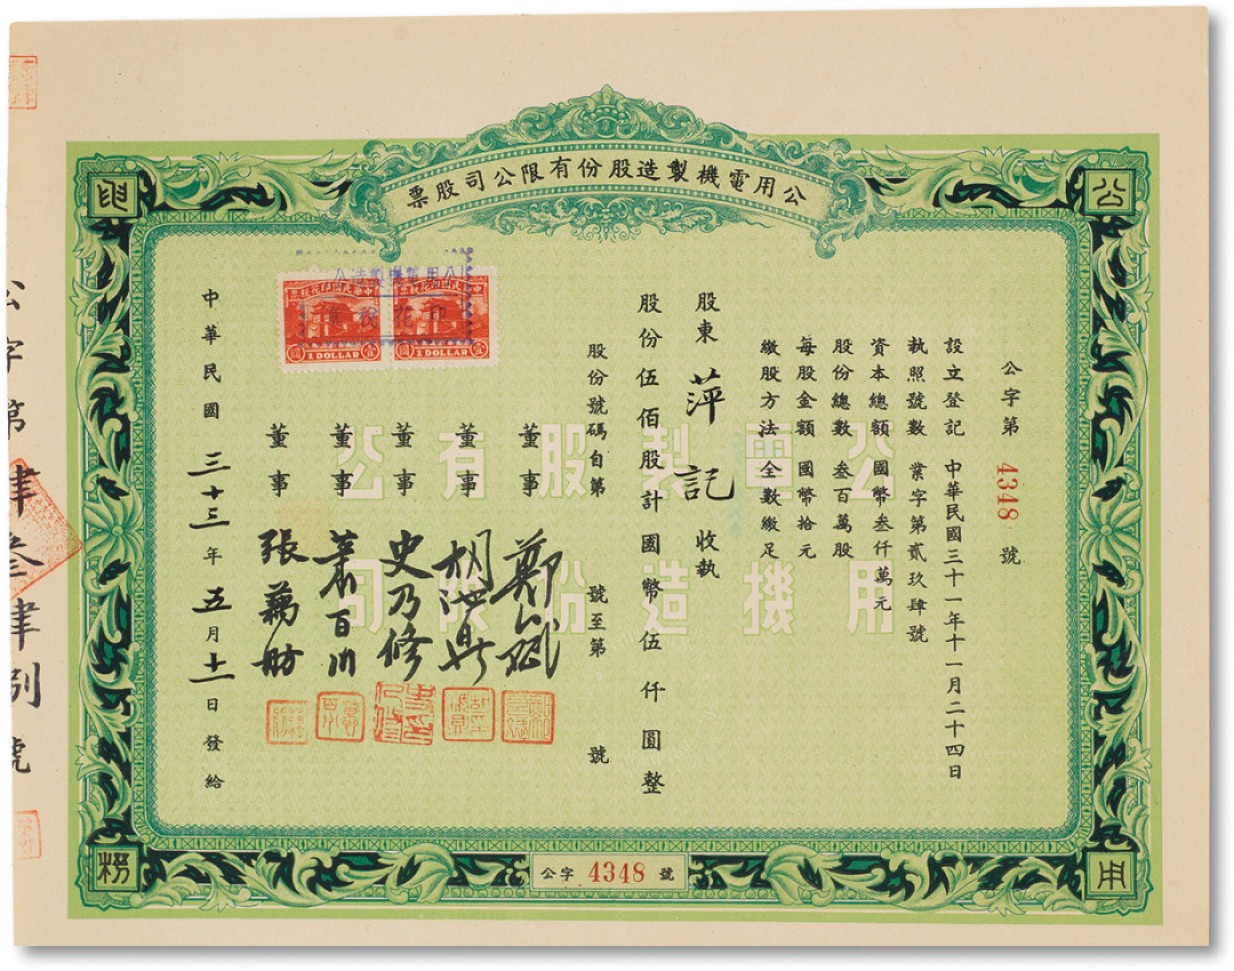 公用電機製造股份有限公司股票
公字第 4348 號
設立登記 中華民國三十一年十一月二十四日
執照號數 業字第貳玖肆號
資本總額 國幣叁仟萬元
股份總數 叁百萬股
每股金額 國幣拾元
繳股方法 全數繳足
股東 萍記 收執
股份伍佰股計國幣伍仟圓整
股份號碼自第 號至第 號
董事 鄭
董事 胡池鼎
董事 史乃修
董事 蕭百川
董事 張菊舫
中華民國三十三年五月十一日發給
中華民國印花稅票
壹圓 1 DOLLAR
中華民國印花稅票
壹圓 1 DOLLAR
公用電機製造
印花稅
公電製股有公
用機造份限司
公用
公字 4348 號
公字第肆叁肆捌號